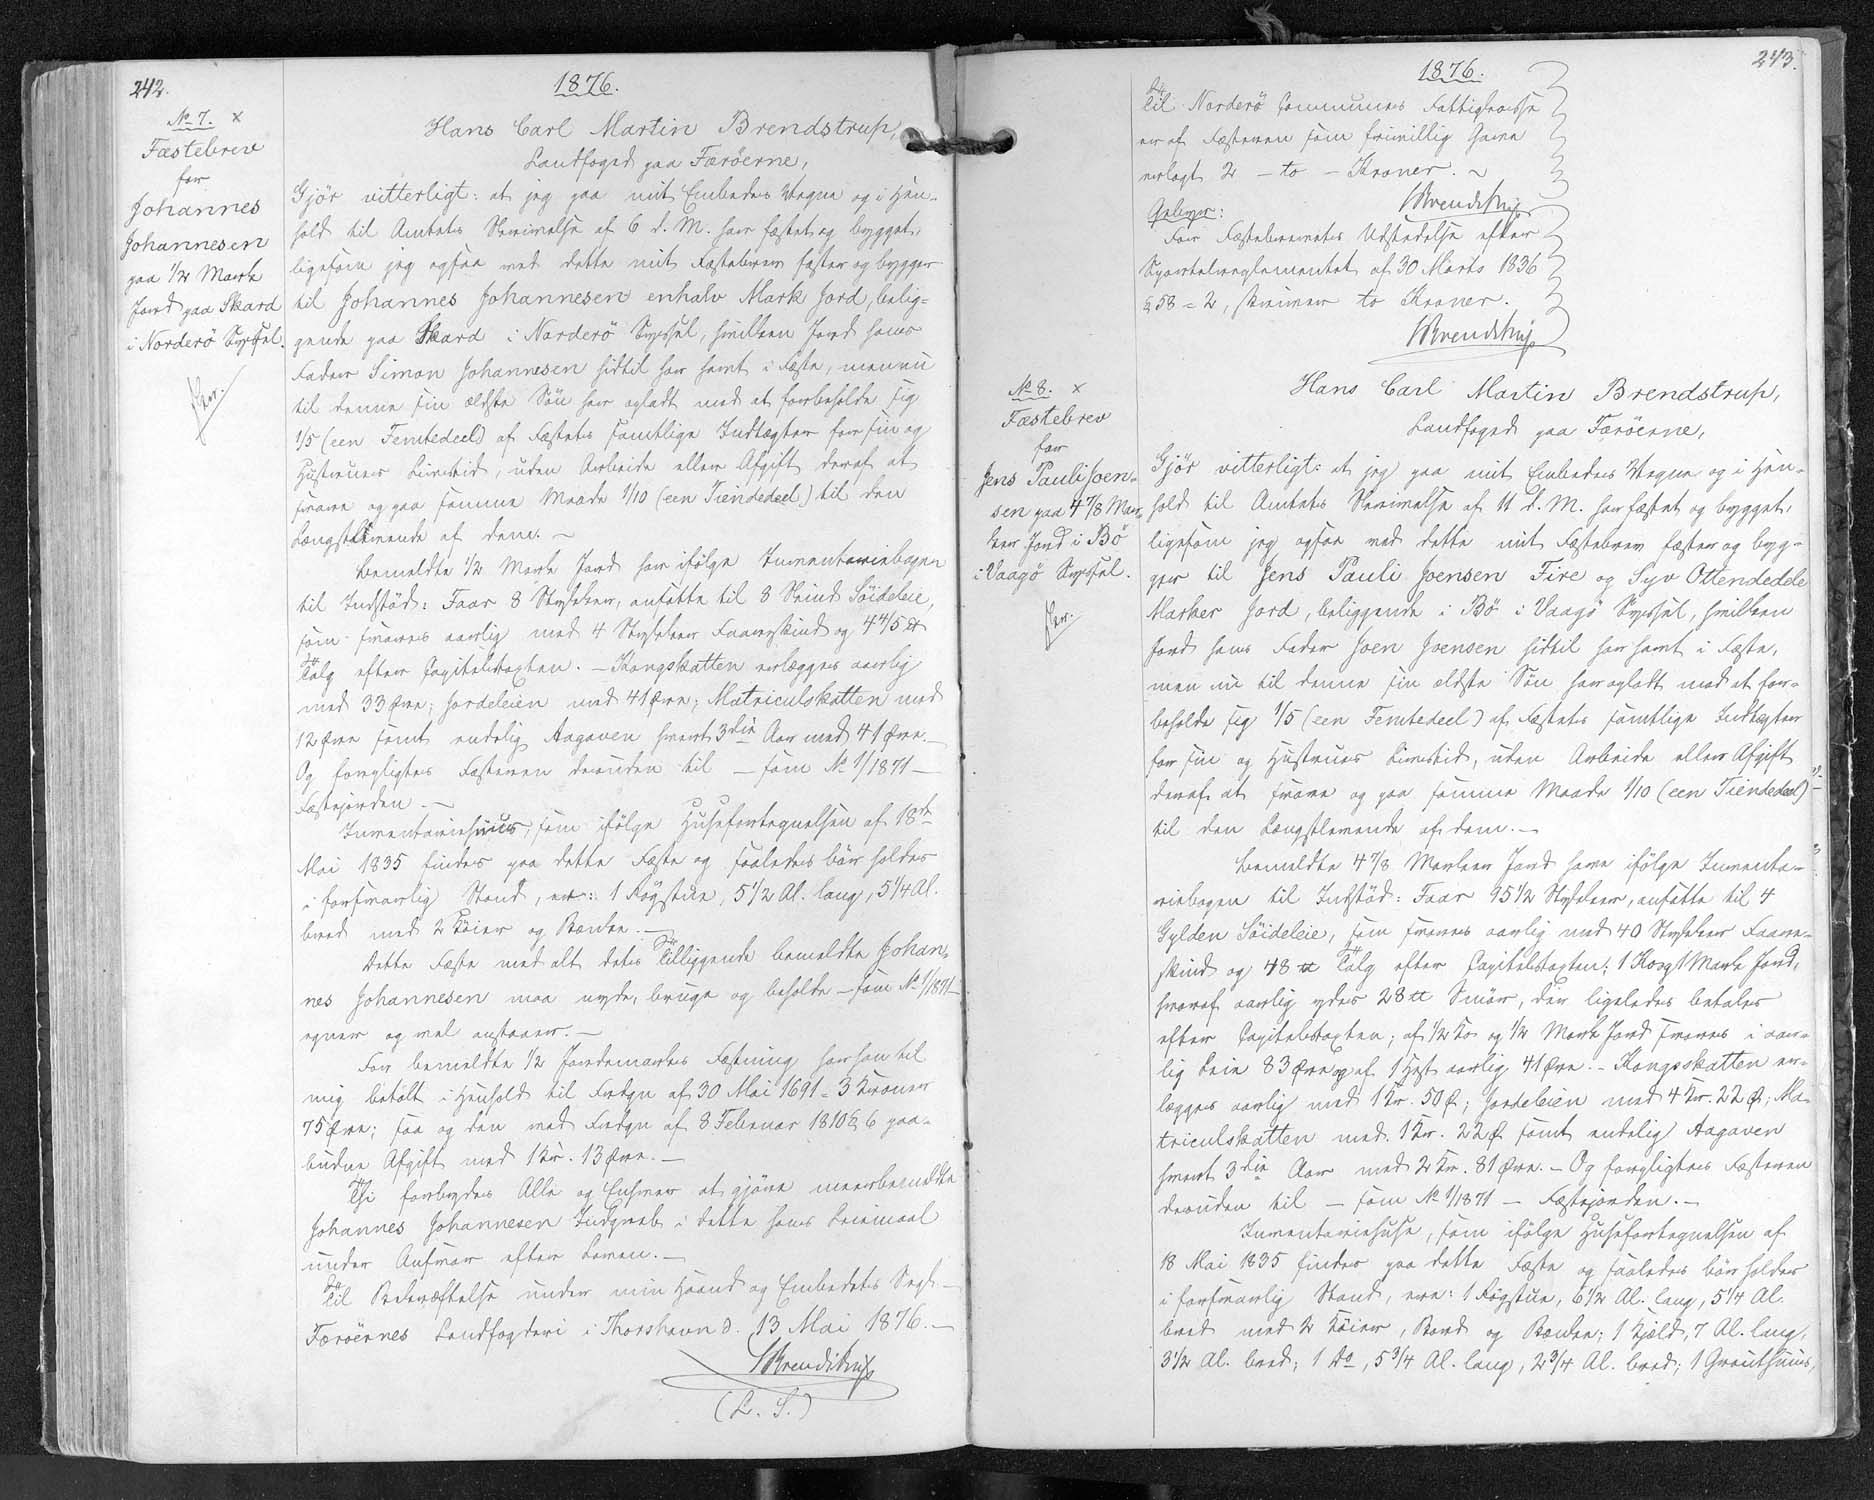 242.
1876.
No 7. x
Fæstebrev
for
Johannes
Johannesen
paa 1/2 Mark
Jord paa Skard
i Norderö Syssel.
Hans Carl Martin Brendstrup,
Landfoged paa Færöerne,
Gjör vitterligt: at jeg paa mit Embedes Vegne og i Hen-
hold til Amtets Skrivelse af 6 d. M. har fæstet og bygget,
ligesom jeg ogsaa ved dette mit Fæstebrev fæster og bygger
til Johannes Johannesen enhalv Mark Jord, belig-
gende paa Skard i Norderö Syssel, hvilken Jord hans
Fader Simon Johannesen hidtil har havt i Fæste, men nu
til denne sin ældste Sön har opladt mod at forbeholde sig
1/5 (een Femtedeel) af Fæstets samtlige Indtægter for sin og
Hustrues Livstid, uden Arbeide eller Afgift deraf at
svare og paa samme Maade 1/10 (een Tiendedeel) til den
Længstlevende af dem. —
Bemeldte 1/2 Mark Jord har ifölge Inventariebogen
til Indstöd: Faar 8 Stykker, ansatte til 8 Skind Söideleie,
som svares aarlig med 4 Stykker Faareskind og 4 4/5 ℔
Talg efter Capitelstaxten. — Kongskatten erlægges aarlig
med 33 Øre; Jordeleien med 41 Øre; Matriculskatten med
12 Øre samt endelig Aagaven hvert 3die Aar med 41 Øre. —
Og forpligtes Fæsteren desuden til — som No 1/1871 —
Fæstejorden. —
Inventariehuus, som ifölge Husefortegnelsen af 18de
Mai 1835 findes paa dette Fæste og saaledes bör holdes
i forsvarlig Stand, ere: 1 Rögstue, 5 1/2 Al. lang, 5 1/4 Al.
bred med 2 Köier og Bænke. —
Dette Fæste med alt dets Tilliggende bemeldte Johan-
nes Johannesen maa nyde, bruge og beholde — som No 1/1871 —
egner og vel anstaaer. —
For bemeldte 1/2 Jordemarks Fæstning har han til
mig betalt i Henhold til Frdgn af 30 Mai 1691 = 3 Kroner
75 Øre; saa og den ved Frdgn af 8 Februar 1810 § 6 paa-
budne Afgift med 1 Kr. 13 Øre. —
Thi forbydes Alle og Enhver at gjöre meerbemeldte
Johannes Johannesen Indgreb i dette hans Leiemaal
under Ansvar efter Loven. —
Til Bekræftelse under min Haand og Embedets Segl. —
Færöernes Landfogderi i Thorshavn d. 13 Mai 1876. —
HBrendstrup
(L. S.)
243.
1876.
Til Norderö Communes Fattigkasse
er af Fæsteren som frivillig Gave
erlagt 2 — to — Kroner. ~
HBrendstrup
Gebyr:
For Fæstebrevets Udstedelse efter
Sportelreglementet af 30 Marts 1836
§ 58 = 2, skriver to Kroner.
HBrendstrup
No 8. x
Fæstebrev
for
Jens Pauli Joen-
sen paa 4 7/8 Mar-
ker Jord i Bö
i Vaagö Syssel.
Hans Carl Martin Brendstrup,
Landfoged paa Færöerne,
Gjör vitterligt: at jeg paa mit Embedes Vegne og i Hen-
hold til Amtets Skrivelse af 11 d. M. har fæstet og bygget,
ligesom jeg ogsaa ved dette mit Fæstebrev fæster og byg-
ger til Jens Pauli Joensen Fire og Syv Ottendedele
Marker Jord, beliggende i Bö i Vaagö Syssel, hvilken
Jord hans Fader Joen Joensen hidtil har havt i Fæste,
men nu til denne sin ældste Sön har opladt mod at for-
beholde sig 1/5 (een Femtedeel) af Fæstets samtlige Indtægter
for sin og Hustrues Livstid, uden Arbeide eller Afgift
deraf at svare og paa samme Maade 1/10 (een Tiendedeel)
til den Længstlevende af dem. —
Bemeldte 4 7/8 Marker Jord have ifölge Inventa-
riebogen til Indstöd: Faar 95 1/2 Stykker, ansatte til 4
Gylden Söideleie, som svares aarlig med 40 Stykker Faare-
skind og 48 ℔ Talg efter Capitelstaxten; 1 Ko og 1 Mark Jord,
hvoraf aarlig ydes 28 ℔ Smör, der ligeledes betales
efter Capitelstaxten; af 1/2 Ko og 1/2 Mark Jord svares i aar-
lig Leie 83 Øre og af 1 Hest aarlig 41 Øre. — Kongsskatten er-
lægges aarlig med 1 Kr. 50 Ø; Jordeleien med 4 Kr. 22 Ø; Ma-
triculskatten med 1 Kr. 22 Ø samt endelig Aagaven
hvert 3die Aar med 2 Kr. 81 Øre. — Og forpligtes Fæsteren
desuden til — som No 1/1871 — Fæstejorden. —
Inventariehuse, som ifölge Husefortegnelsen af
18 Mai 1835 findes paa dette Fæste og saaledes bör holdes
i forsvarlig Stand, ere: 1 Rögstue, 6 1/2 Al. lang, 5 1/4 Al.
bred med 2 Köier, Bord og Bænke; 1 Hjæld, 7 Al. lang,
3 1/2 Al. bred; 1 Do, 5 3/4 Al. lang, 2 3/4 Al. bred; 1 Grouthuus,